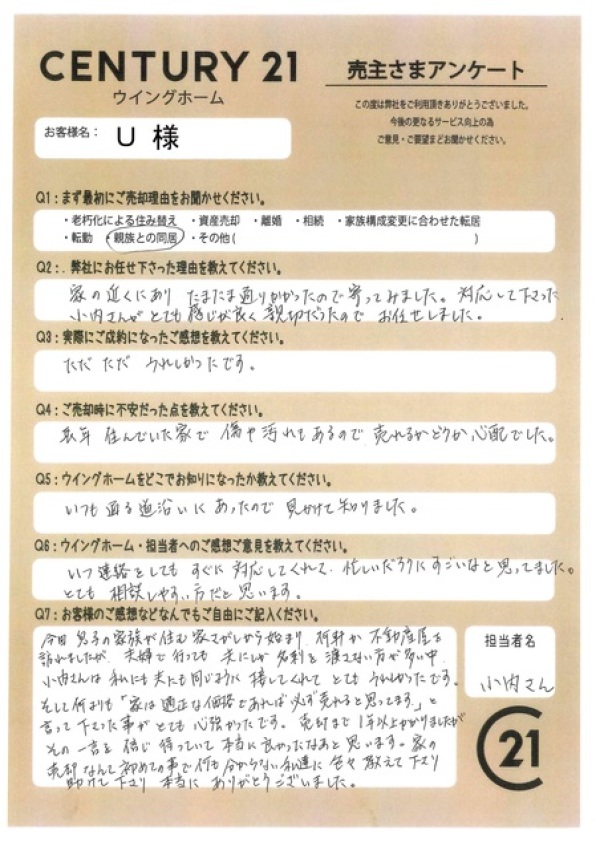 CENTURY 21
ウイングホーム
売主さまアンケート
この度は弊社をご利用頂きありがとうございました。
今後の更なるサービス向上の為
ご意見・ご要望までお聞かせください。
お客様名: U 様
Q1:まず最初にご売却理由をお聞かせください。
・老朽化による住み替え ・資産売却 ・離婚 ・相続 ・家族構成変更に合わせた転居
・転勤 ・親族との同居 ・その他( )
Q2:.弊社にお任せ下さった理由を教えてください。
家の近くにあり たまたま通りかかったので寄ってみました。対応して下さった
小内さんがとても感じが良く 親切だったので お任せしました。
Q3:実際にご成約になったご感想を教えてください。
ただ ただ うれしかったです。
Q4:ご売却時に不安だった点を教えてください。
長年 住んでいた家で 傷や汚れもあるので 売れるかどうか心配でした。
Q5:ウイングホームをどこでお知りになったか教えてください。
いつも通る道沿いにあったので 見かけて知りました。
Q6:ウイングホーム・担当者へのご感想ご意見を教えてください。
いつ連絡をしても すぐに対応してくれて、忙しいだろうにすごいなと思ってました。
とても 相談しやすい方だと思います。
Q7:お客様のご感想などなんでもご自由にご記入ください。
今回 息子の家族が住む家さがしから始まり、何軒か不動産屋を
訪れましたが、夫婦で行っても 夫にしか名刺を渡さない方が多い中、
小内さんは私にも夫にも同じように接してくれて とてもうれしかったです。
そして何よりも「家は適正な価格であれば必ず売れると思ってます。」と
言って下さった事がとても心強かったです。売却まで1年以上かかりましたが
その一言を信じ待っていて本当に良かったなあと思います。家の
売却なんて初めての事で何も分からない私達に色々教えて下さり
助けて下さり 本当に ありがとうございました。
担当者名
小内さん
C21